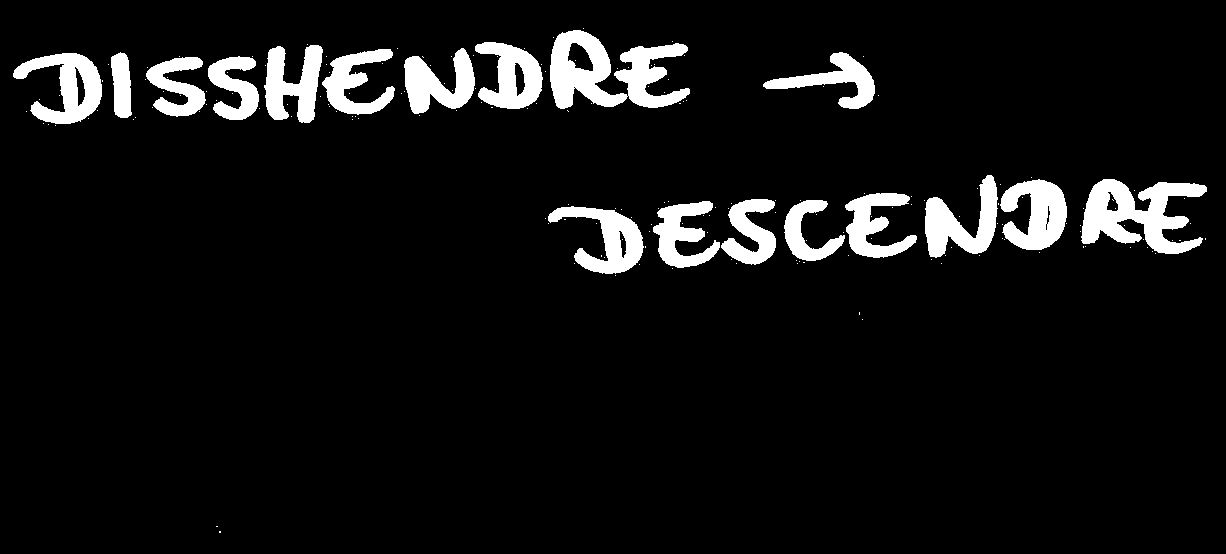 DISSHENDRE →
DESCENDRE